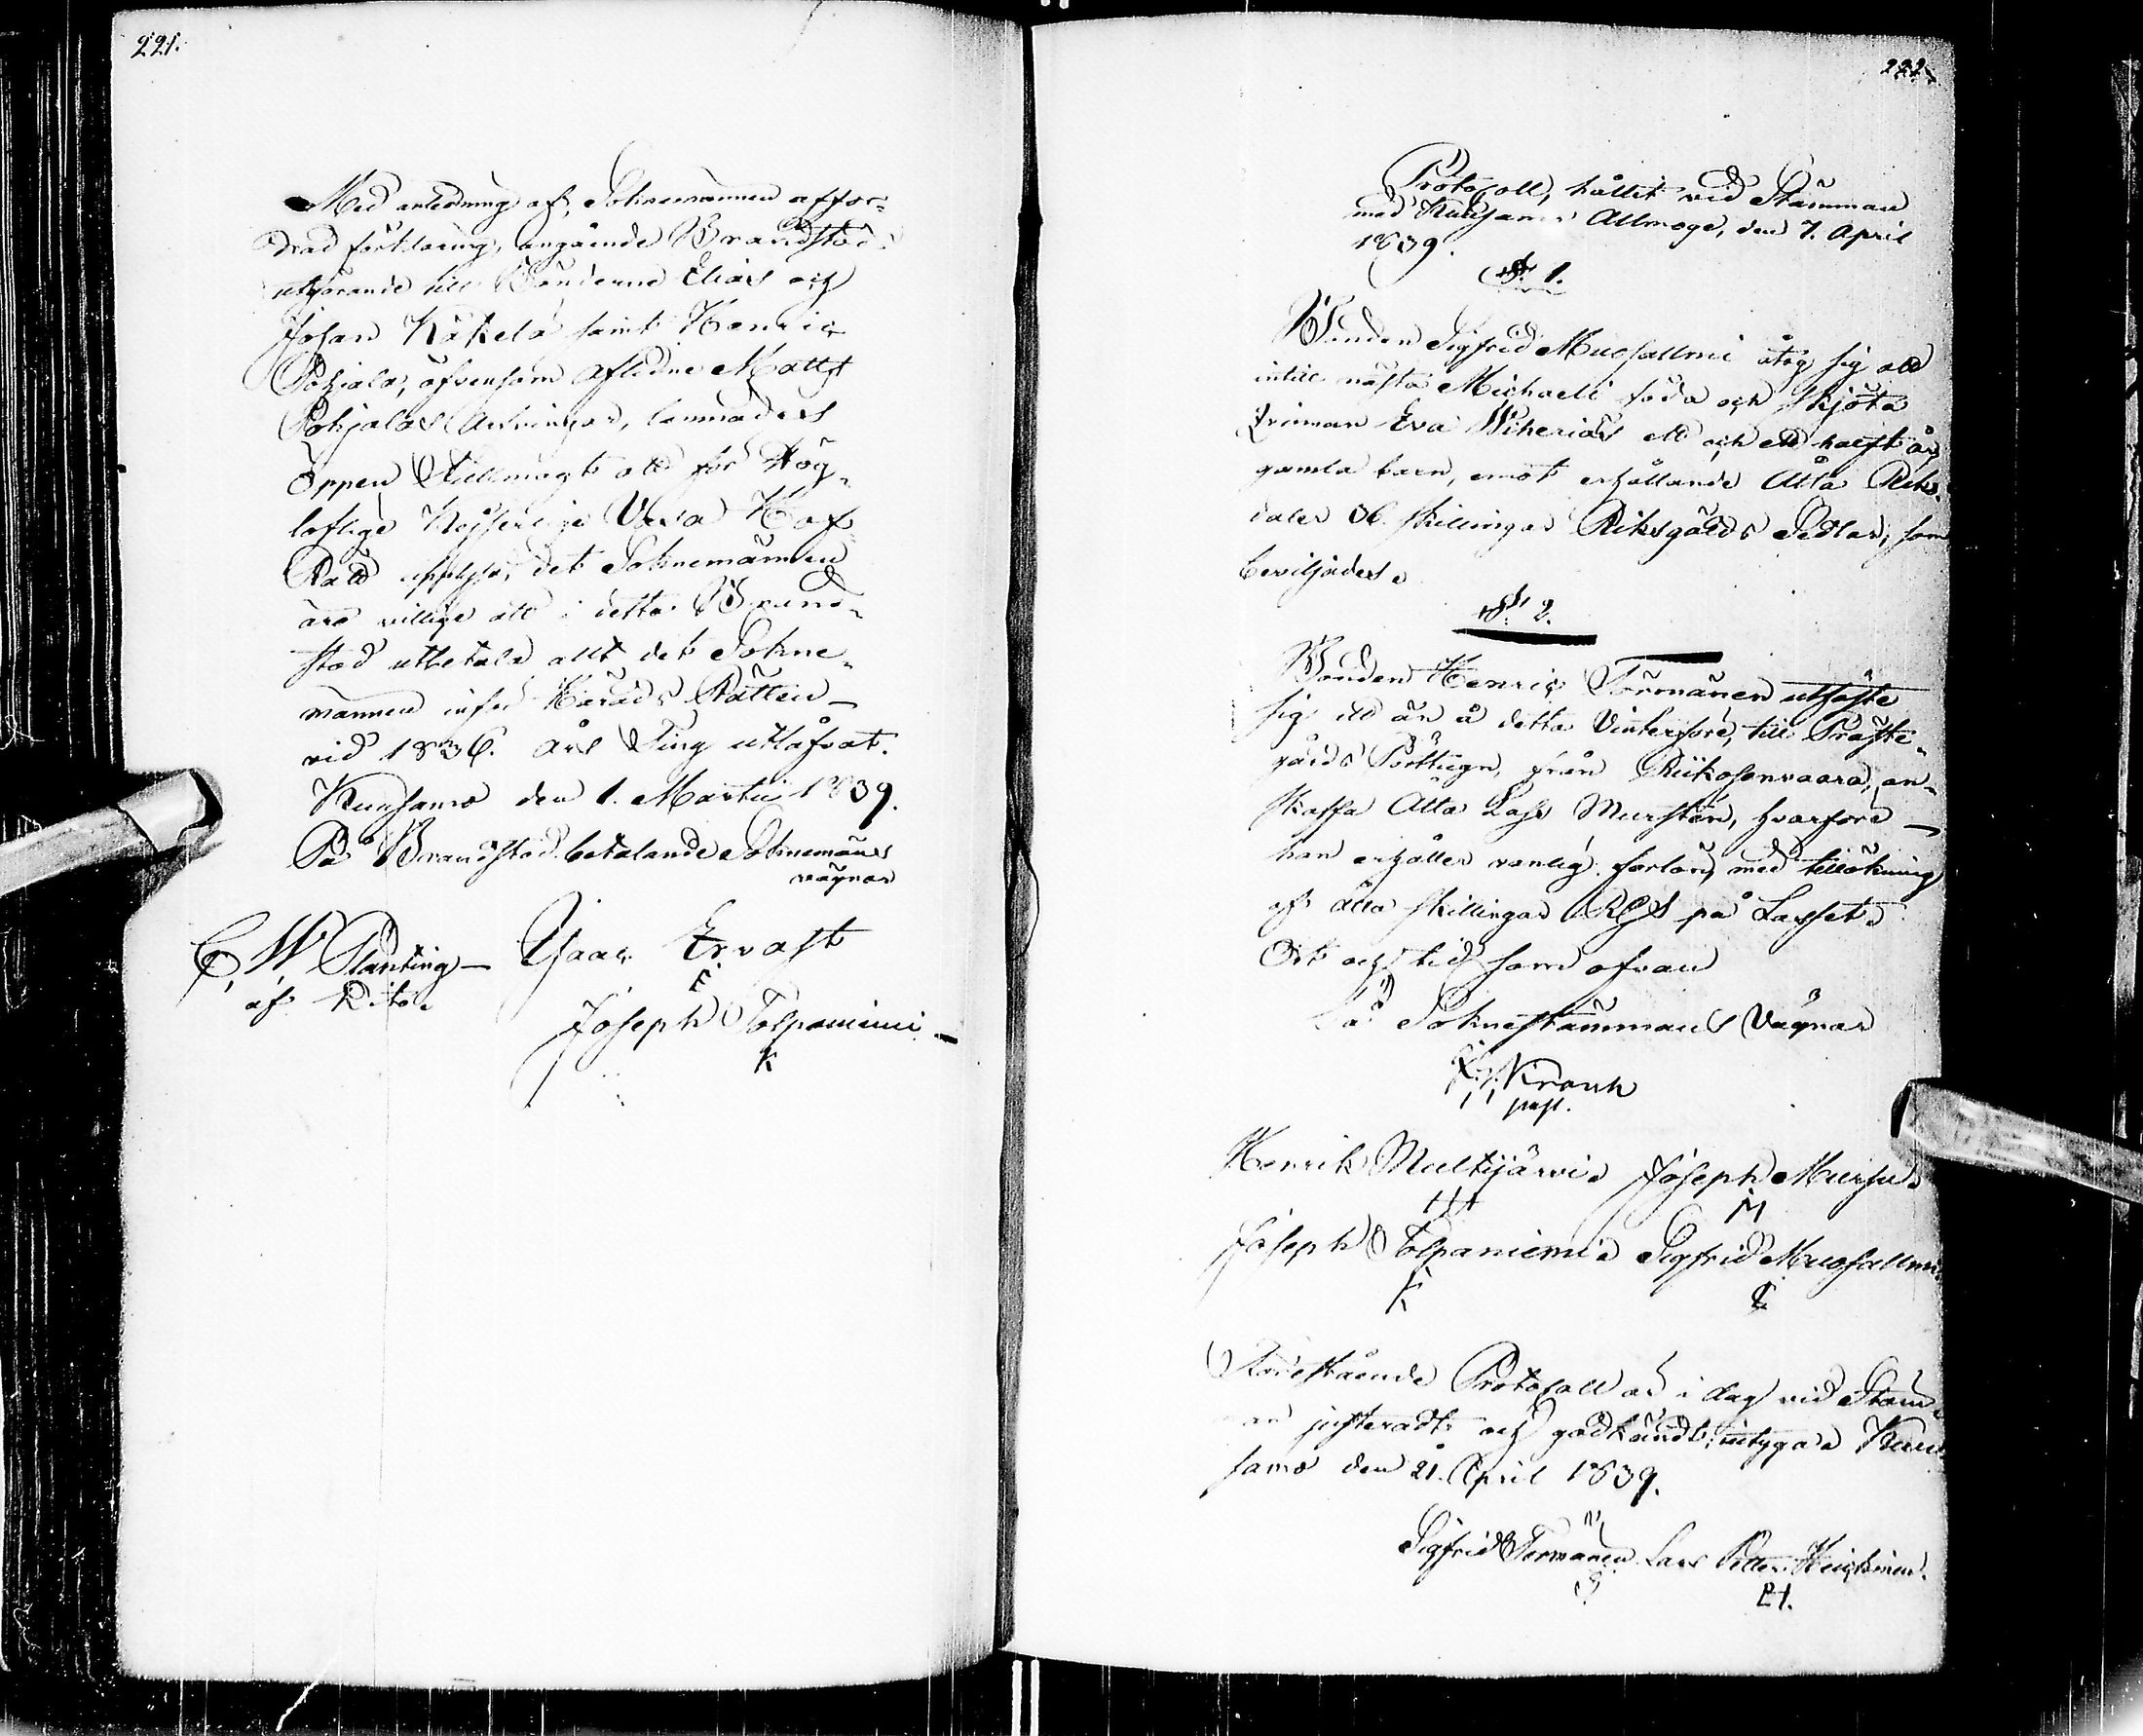 221.
Med anledning af, Soknemännen affor-
drad förklaring, angående Brandstods
utgörande till Bönderne Elias och
Johan Käkelä samt Henric
Pohjala, äfvensom aflidne Matts
Pohjalas Arfvingar, lemnades
öppen Fullmagt att för Hög-
loflige Kejserlige Vasa Hof
Rätt upplysa, det Sokne männen
äro villige att i detta Brand-
stod utbetala allt det Sokne-
männen inför Härads Rätten
vid 1836. års Ting utlåfvat.
Kuusamo den 1. Martii 1839.
På Brandstod betalande Sokne mäns
vägnar
C. W. Planting
af Kito.
Isaac Ervast
E
Joseph Tolpaniemi
K
222.
Protocoll, hållit vid Stämman
med Kuusamo Allmoge, den 7. April
1839.
§. 1.
Bonden Sigfrid Muosallmi åtog sig att
intill nästa Michaeli föda och skjöta
Qvinnan Eva Wiherias ett och ett halft år
gamla barn, emot erhållande Åtta Riks-
daler 36. skillingar Riksgälds Sedlar, som
beviljades.
§. 2.
Bonden Henric Törmänen utfäste
sig att än å detta Vinterföre, till Präste-
gårds Pörttugn, från Riikosenvaara, an-
skaffa Åtta Lass Mursten, hvarföre
han erhåller vanlig forlön med tillökning
af åtta skillingar RGS på Lasset.
Ort och tid som ofvan
På Sokne stämmans Vägnar
Kronk
past.
Henrik Multijärvi. Joseph Mursu.
HH M
Joseph Tolpaniemi. Sigfrid Muosallmi.
K
Förestående Protocoll är i dag vid Stäm-
an justeradt och godkändt; intyga. Kuu
samo den 21. April 1839.
Sigfrid Tormänen Lars Petter
PH.